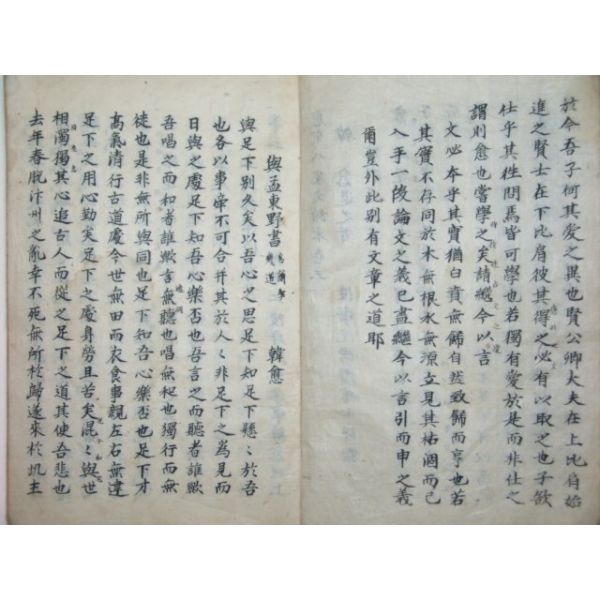 於今吾子何其愛之異也賢公卿大夫在上比肩始
進之賢士在下比肩彼其得之必有以取之也子欲
仕乎其徃問焉皆可學也若獨有愛於是而非仕之
謂則愈也嘗學之矣請繼今以言
文必本乎其實猶白賁無飾自然致飾而亨也若
其實不存同於木無根水無源立見其枯涸而已
入手一段論文之義已盡繼今以言引而申之義
爾豈外此別有文章之道耶
與孟東野書 韓愈
與足下別久矣以吾心之思足下知足下懸〻於吾
也各以事牽不可合并其於人〻非足下之為見而
日與之處足下知吾心樂否也吾言之而聽者誰歟
吾唱之而和者誰歟言無聽也唱無和也獨行而無
徒也是非無所與同也足下知吾心樂否也足下才
高氣清行古道處今世無田而衣食事親左右無違
足下之用心勤矣足下之處身勞且苦矣混〻與世
相濁獨其心追古人而從之足下之道其使吾悲也
去年春脫汴州之亂幸不死無所於歸遂來於此主